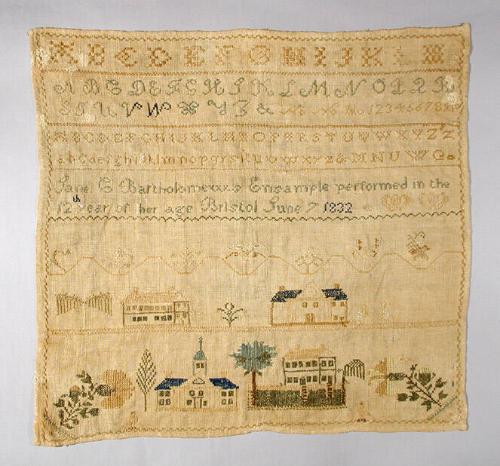 A B C D E F G H I J K L M
A B C D E F G H I K L M N O P Q R
S T U V W X Y Z & No 1 2 3 4 5 6 7 8 9
A B C D E F G H I J K L M N O P Q R S T U V W X Y Z
a b c d e f g h i j k l m n o p q r s t u v w x y z & M N U W G
Jane E Bartholomew,s Ensample performed in the
12th year of her age Bristol June 7 1832